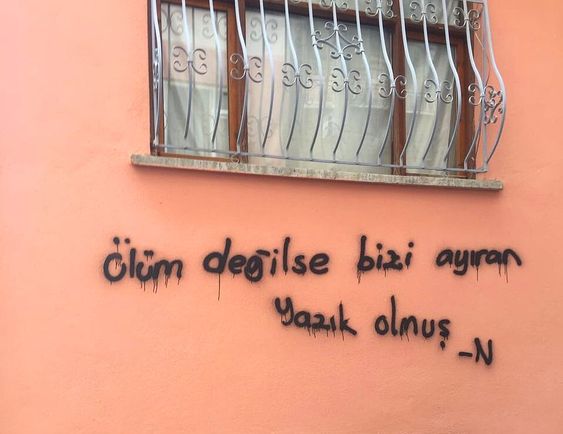 Ölüm değilse bizi ayıran
Yazık olmuş
-N